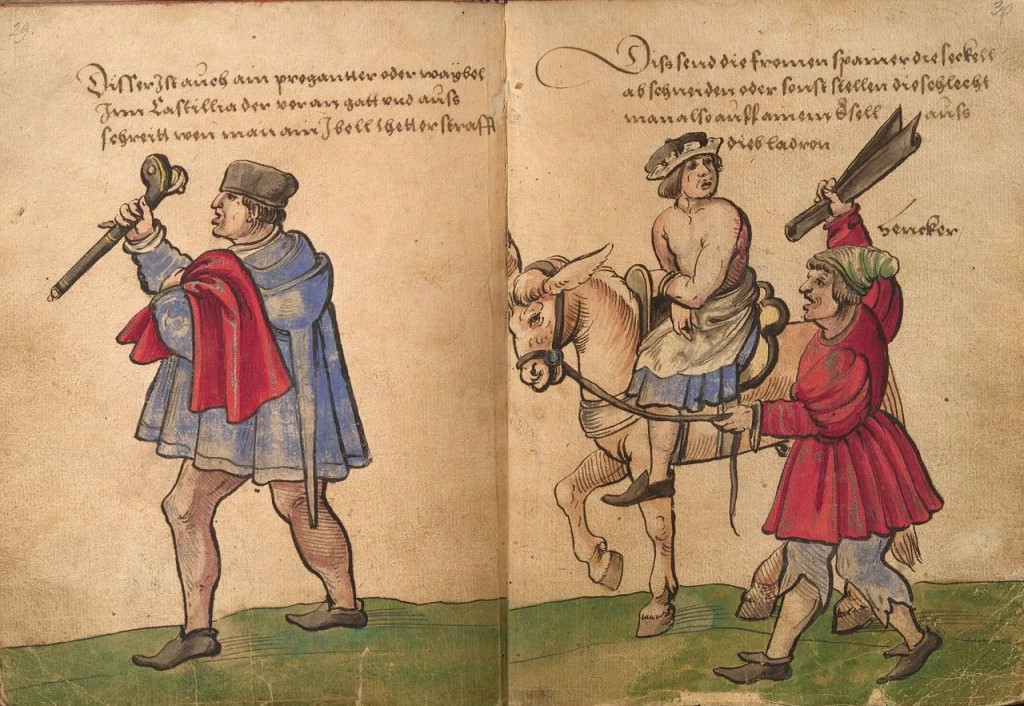 29.
Disser Ist auch ain pregantter oder waybel
Inn Castillia der voran gatt vnd auss
schreitt wen man ain Ibell thetter strafft
30
Diss send die fromen spanier die seckell
ab schneiden oder sonst stellen die schlecht
man also auff amem Essell auss
dieb ladron
hencker